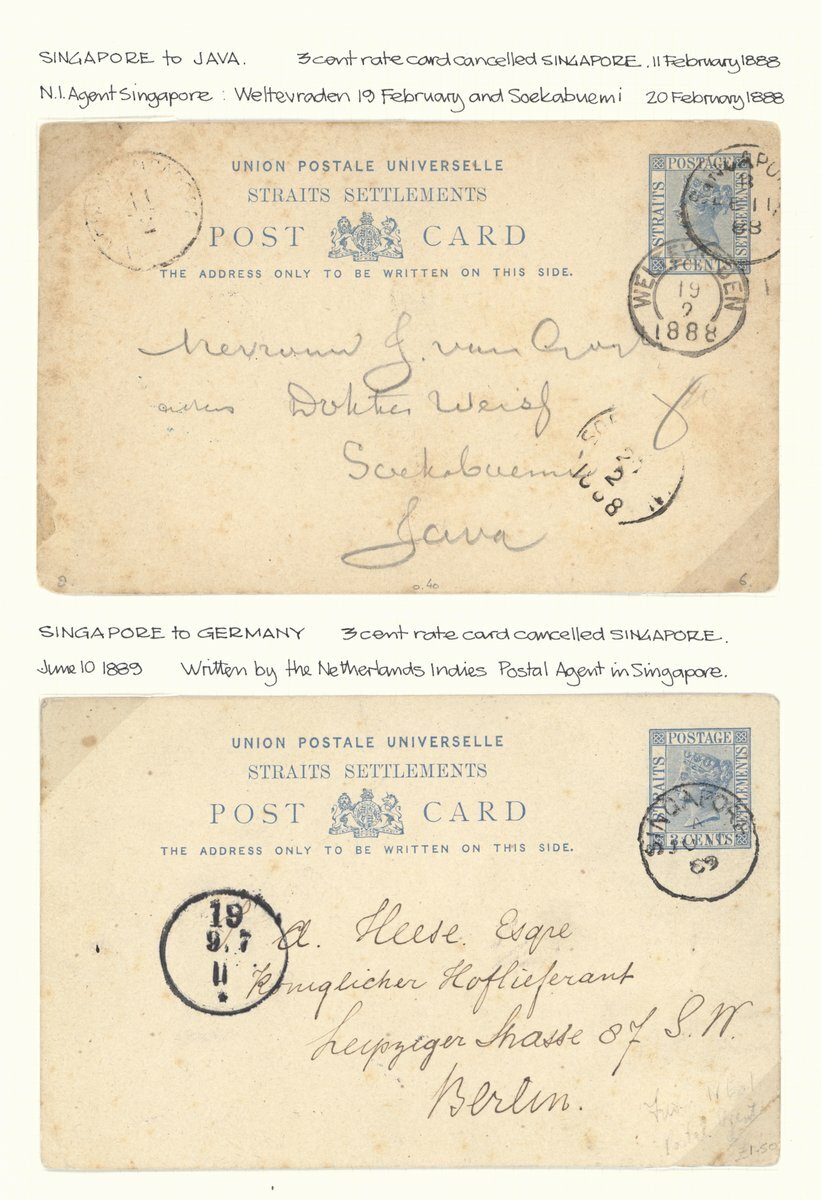 SINGAPORE to JAVA. 3 cent rate card cancelled SINGAPORE. 11 February 1888
N.I. Agent Singapore : Weltevraden 19 February and Soekabuemi 20 February 1888
UNION POSTALE UNIVERSELLE
STRAITS SETTLEMENTS
POST CARD
THE ADDRESS ONLY TO BE WRITTEN ON THIS SIDE.
POSTAGE
STRAITS
SETTLEMENTS
3 CENTS
11
88
19
2
1888
Mevrouw J. van
Dokter Weisf
Soekaboemi
Java
0.40
6.
SINGAPORE to GERMANY 3 cent rate card cancelled SINGAPORE.
June 10 1889 Written by the Netherlands Indies Postal Agent in Singapore.
UNION POSTALE UNIVERSELLE
STRAITS SETTLEMENTS
POST CARD
THE ADDRESS ONLY TO BE WRITTEN ON THIS SIDE.
POSTAGE
STRAITS
SETTLEMENTS
3 CENTS
SINGAPORE
89
19
9.7
11
*
A. Heese. Esqre
Königlicher Hoflieferant
Leipziger Strasse 87 S.W.
Berlin.
£1.50